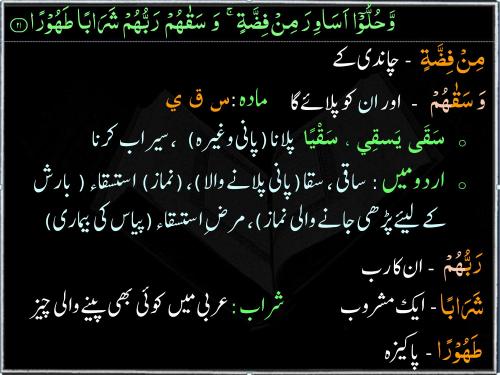 وَّحُلُّوْٓا اَسَاوِرَ مِنْ فِضَّةٍ ۚ وَ سَقٰىهُمْ رَبُّهُمْ شَرَابًا طَهُوْرًا ﴿۲۱﴾
مِنْ فِضَّةٍ - چاندی کے
وَ سَقٰىهُمْ - اور ان کو پلائے گا مادہ : س ق ي
سَقَى يَسقِي ، سَقْيًا پلانا (پانی وغیرہ) ، سیراب کرنا
اردو میں : ساقی ، سقا (پانی پلانے والا) ، (نماز) استسقاء ( بارش
کے لیئے پڑھی جانے والی نماز) ، مرضِ استسقاء (پیاس کی بیماری)
رَبُّهُمْ - ان کا رب
شَرَابًا - ایک مشروب شراب : عربی میں کوئی بھی پینے والی چیز
طَهُوْرًا - پاکیزہ